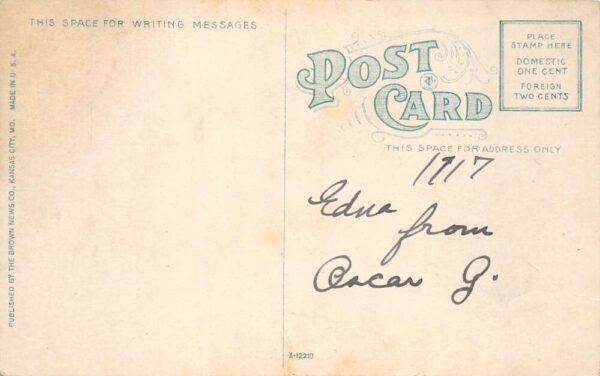 THIS SPACE FOR WRITING MESSAGES
POST CARD
PLACE
STAMP HERE
DOMESTIC
ONE CENT
FOREIGN
TWO CENTS
THIS SPACE FOR ADDRESS ONLY
1917
Edna
from
Oscar G.
PUBLISHED BY THE BROWN NEWS CO., KANSAS CITY, MO. MADE IN U. S. A.
A-12210